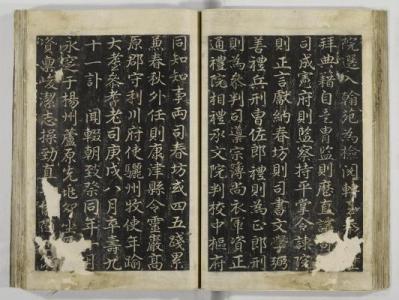 院選入翰苑為檢閱轉
拜典籍自是胄監則歷直
司成憲府則監察持平掌令諫院
則正言獻納春坊則司書文學弼
善禮兵刑曹佐郎禮則為正郎刑
則為參判司宗簿尚衣軍資正
通禮院相禮承文院判校中樞府
同知知事兩司春坊或四五踐累
兼春秋外任則康津縣令靈巖高
原郡守利川府使驪州牧使年踰
大耋參耆老司庚戌八月卒壽九
十一訃聞輟朝致祭同年十月
永窆于楊州蘆原先兆
資稟峻潔志操勁直